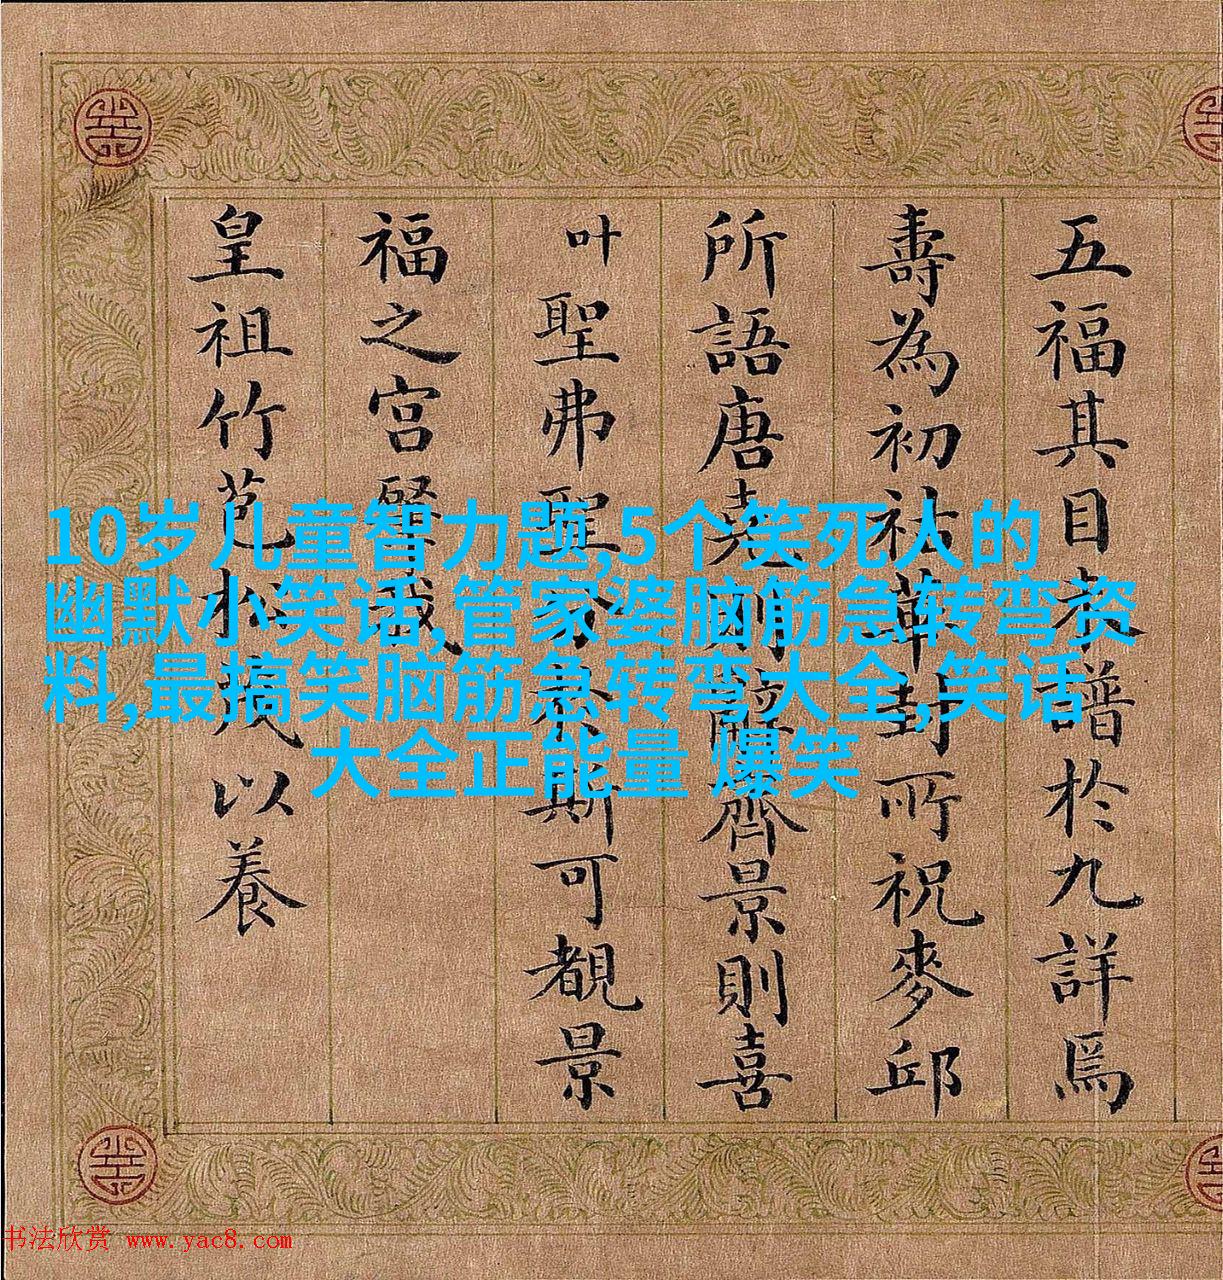 五福其目譜於九詳焉
壽為初祜華封所祝麥邱
所語唐堯則辭齊景則喜
叶聖弗聖斯可覩景
福之宮繄我
皇祖竹苞松茂以養
10岁儿童智力题,5个笑死人的
幽默小笑话,管家婆脑筋急转弯资
料,最搞笑脑筋急转弯大全,笑话
大全正能量 爆笑
书法欣赏 www.yac8.com